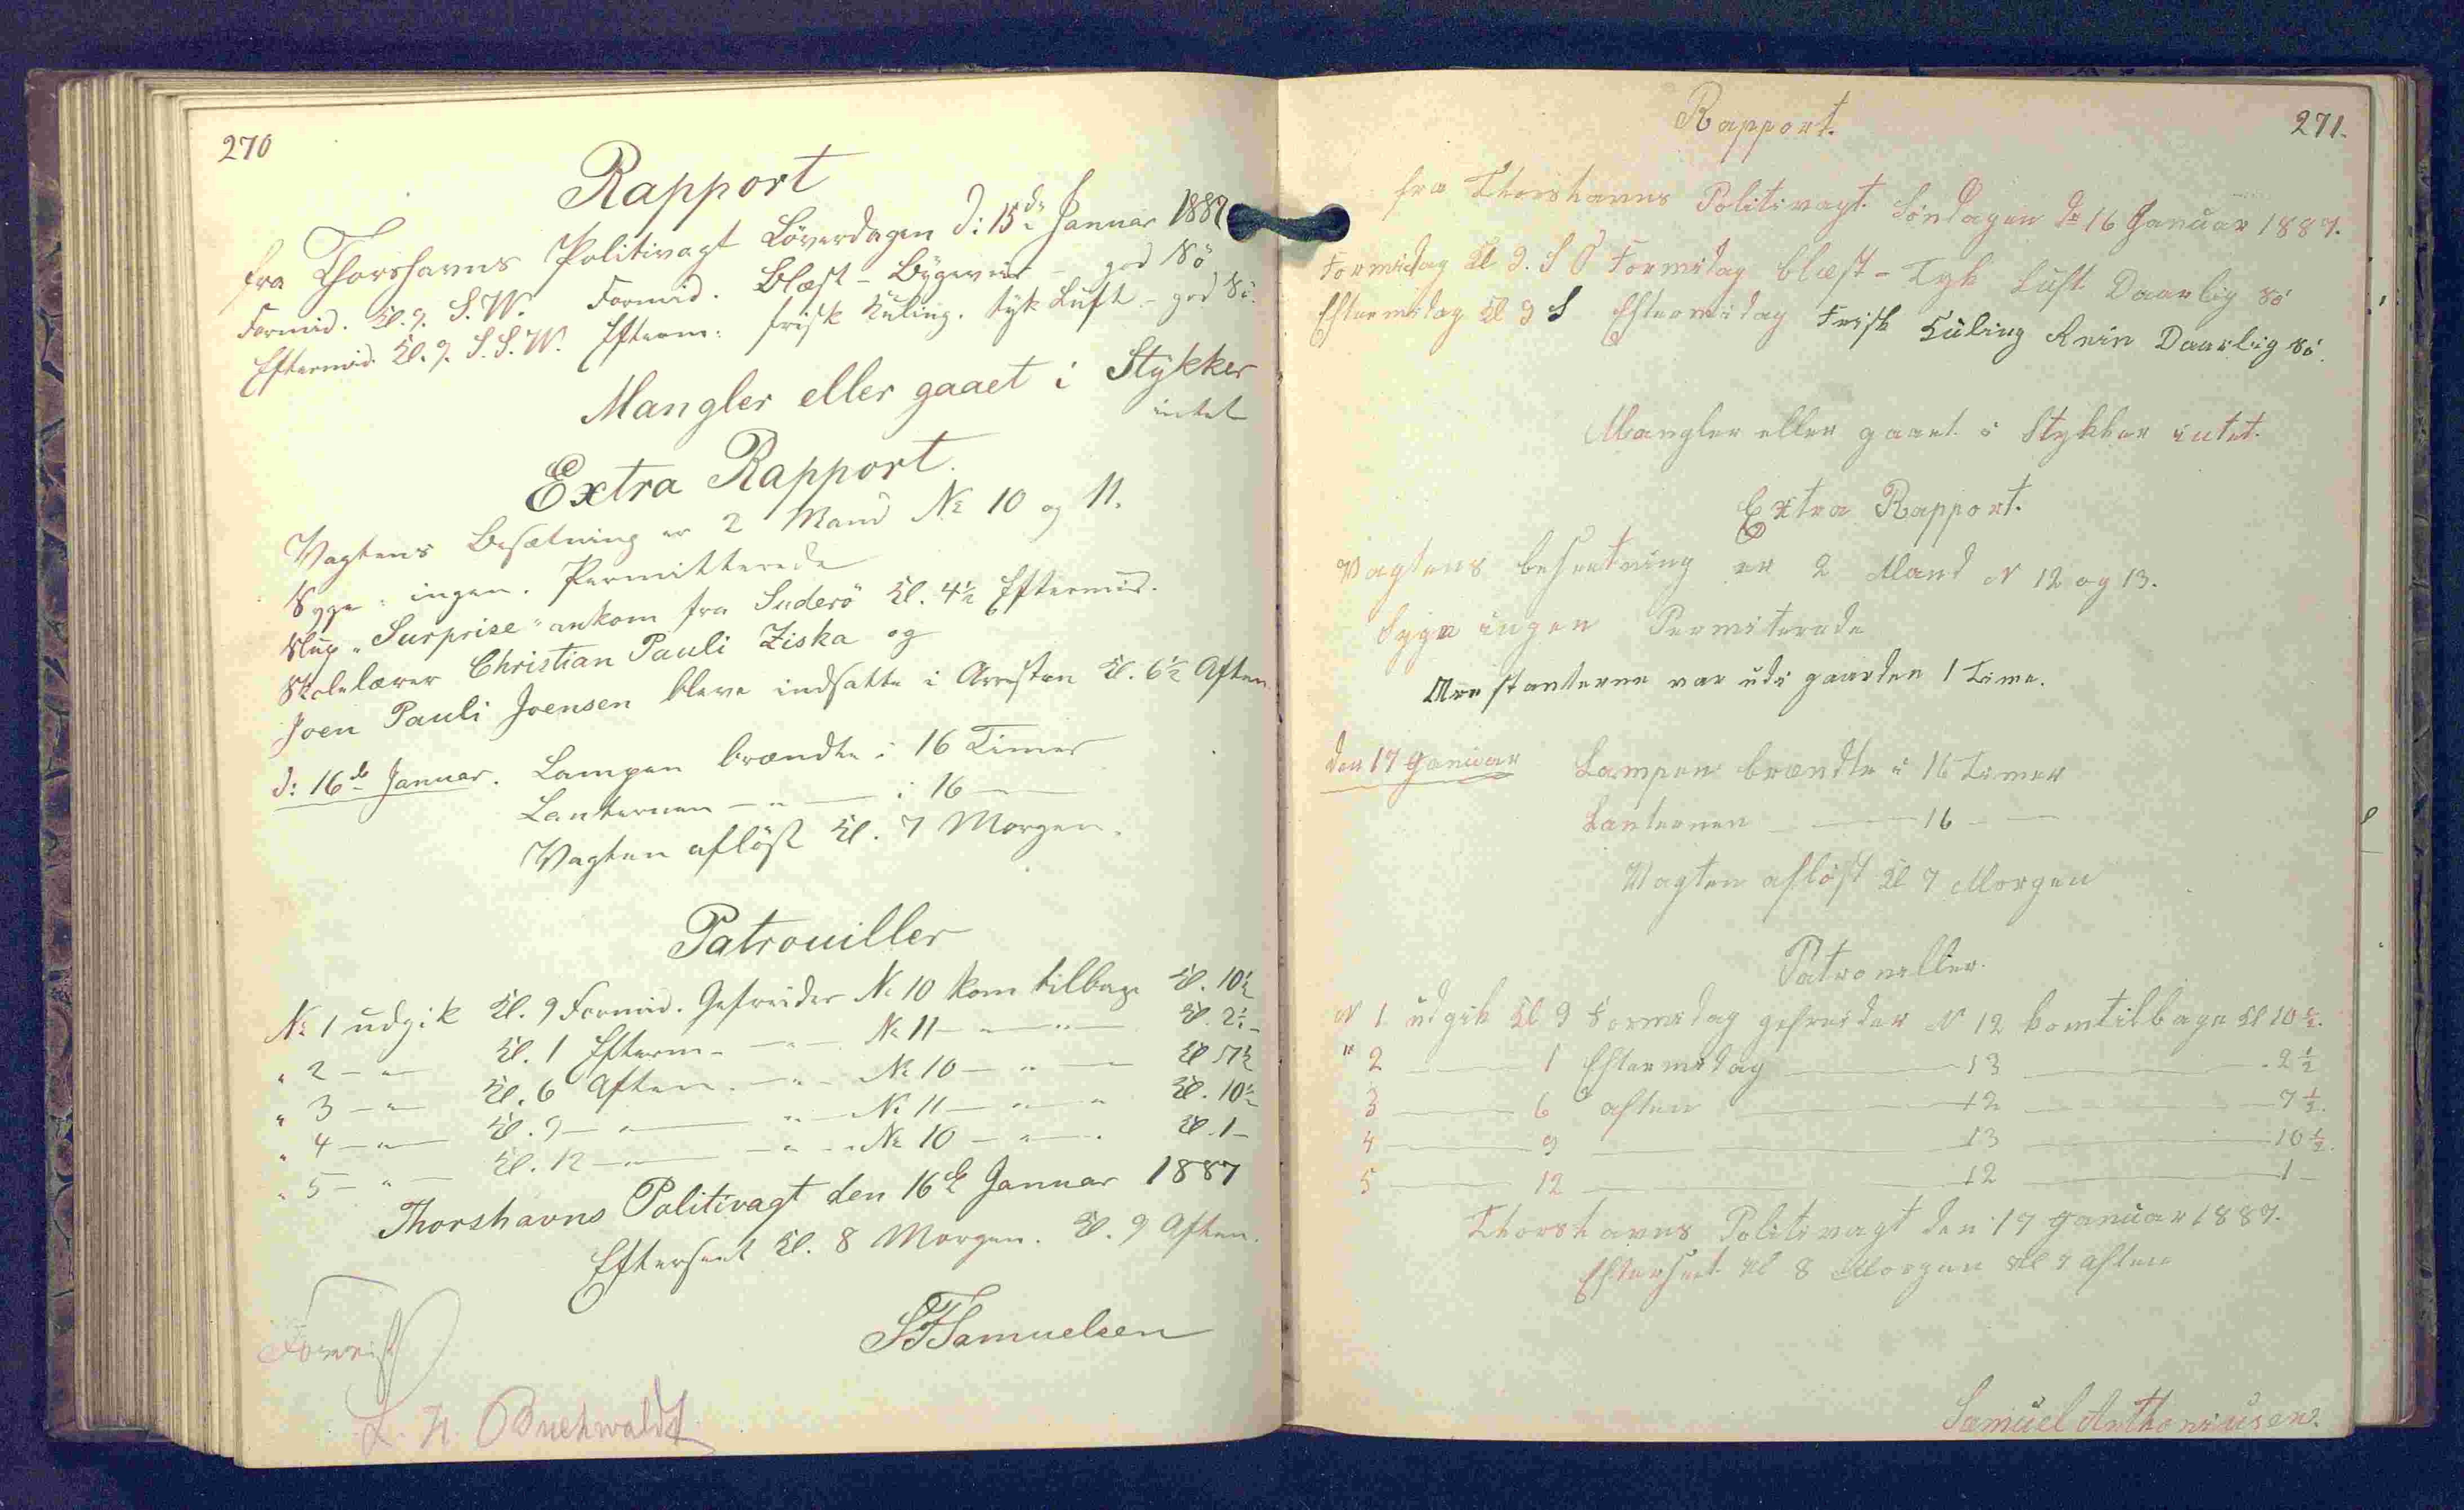 270
Rapport
fra Thorshavns Politivagt Löverdagen d: 15de Januar 1887
Formid. Kl. 9. S.W. Formid. Blæst - Bygeveir - god Sö
Eftermid. Kl. 9. S.S.W. Efterm: frisk Kuling. tyk Luft - god Sö.
Mangler eller gaaet i Stykker
intet
Extra Rapport.
Vagtens Besætning er 2 Mand № 10 og 11.
Syge: ingen. Permitterede
Slup „Surprise" ankom fra Suderö Kl. 4½ Eftermid.
Skolelærer Christian Pauli Ziska og
Joen Pauli Joensen bleve indsatte i Arresten Kl. 6½ Aften.
d: 16de Januar. Lampen brændte i 16 Timer
Lanternen — " — i 16 —
Vagten aflöst Kl. 7 Morgen.
Patrouiller
№ 1 udgik Kl. 9 Formid. Gefreider № 10 kom tilbage Kl. 10½
" 2 — " — Kl. 1 Efterm — " — № 11 — " — Kl. 2½
" 3 — " — Kl. 6 Aften. — " — № 10 — " — Kl 7½
" 4 — " — Kl. 9 — " — " — № 11 — " — " Kl. 10½
" 5 — " — Kl. 12 — " — " — № 10 — " — Kl. 1 —
Thorshavns Politivagt den 16de Januar 1887
Efterseet Kl. 8 Morgen. Kl. 9 Aften.
SFSamuelsen
Forevist
L. N. Buchwaldt
271.
Rapport.
fra Thorshavns Politivagt. Söndagen d= 16 Januar 1887.
Formidag Kl 9. S O Formidag blæst - Tyk Luft Daarlig sö
Eftermidag Kl 9 S Eftermidag Frisk Kuling Rein Daarlig sö.
Mangler eller gaaet i Stykker intet.
Extra Rapport.
Vagtens besætning er 2 Mand N 12 og 13.
Syge ingen Permiterede
Arestanterne var udi gaarden 1 Time.
den 17 Januar Lampen brændte i 16 Timer
Lanternen — — 16 — —
Vagten aflöst Kl 7 Morgen
Patroueller.
N 1 udgik Kl 9 Formidag gefreider N 12 komtilbage Kl 10½.
" 2 — 1 Eftermidag — 13 — 2½
3 — 6 aften — 12 — 7½.
4 — 9 — 13 — 10½.
5 — 12 — 12 — 1 —
Thorshavns Politivagt den 17 Januar 1887.
Efterseet Kl 8 Morgen Kl 9 Aften
Samuel Anthoniusen.